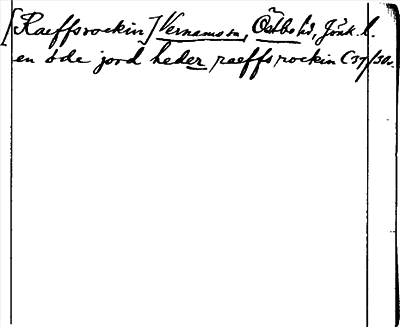 [Raeffsrockin] Vernamo sn, Östbo hd, Jönk. l.
en öde jord heder raeffsrockin C 37/30.